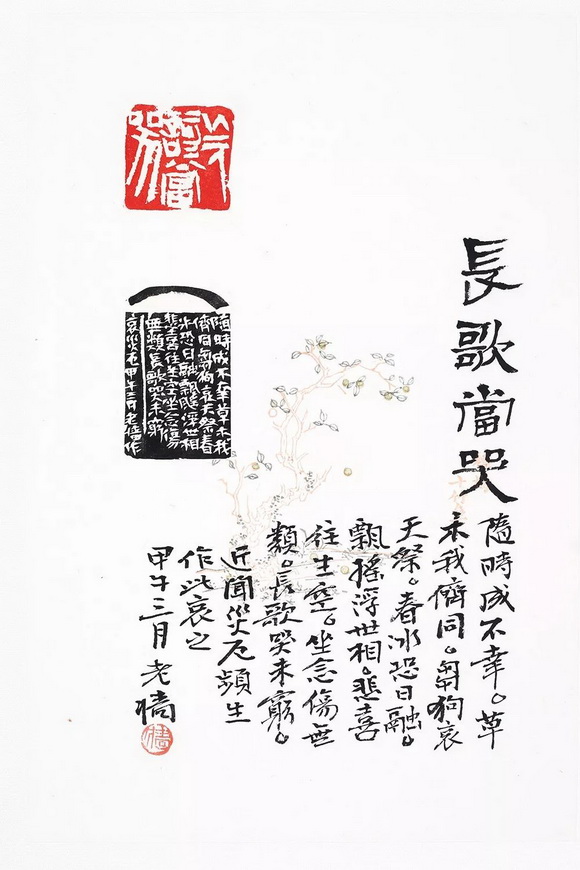 長歌當哭
隨時成不幸。草
木我儕同。芻狗哀
天祭。春冰恐日融。
飄搖浮世相。悲喜
往生空。坐念傷無
類。長歌哭未窮。
近聞災厄頻生
作此哀之
甲午三月 老牆
長歌當哭
隨時成不幸草木我
儕同芻狗哀天祭春
冰恐日融飄搖浮世相
悲喜往生空坐念傷
無類長歌哭未窮
哀災厄甲午三月老牆作